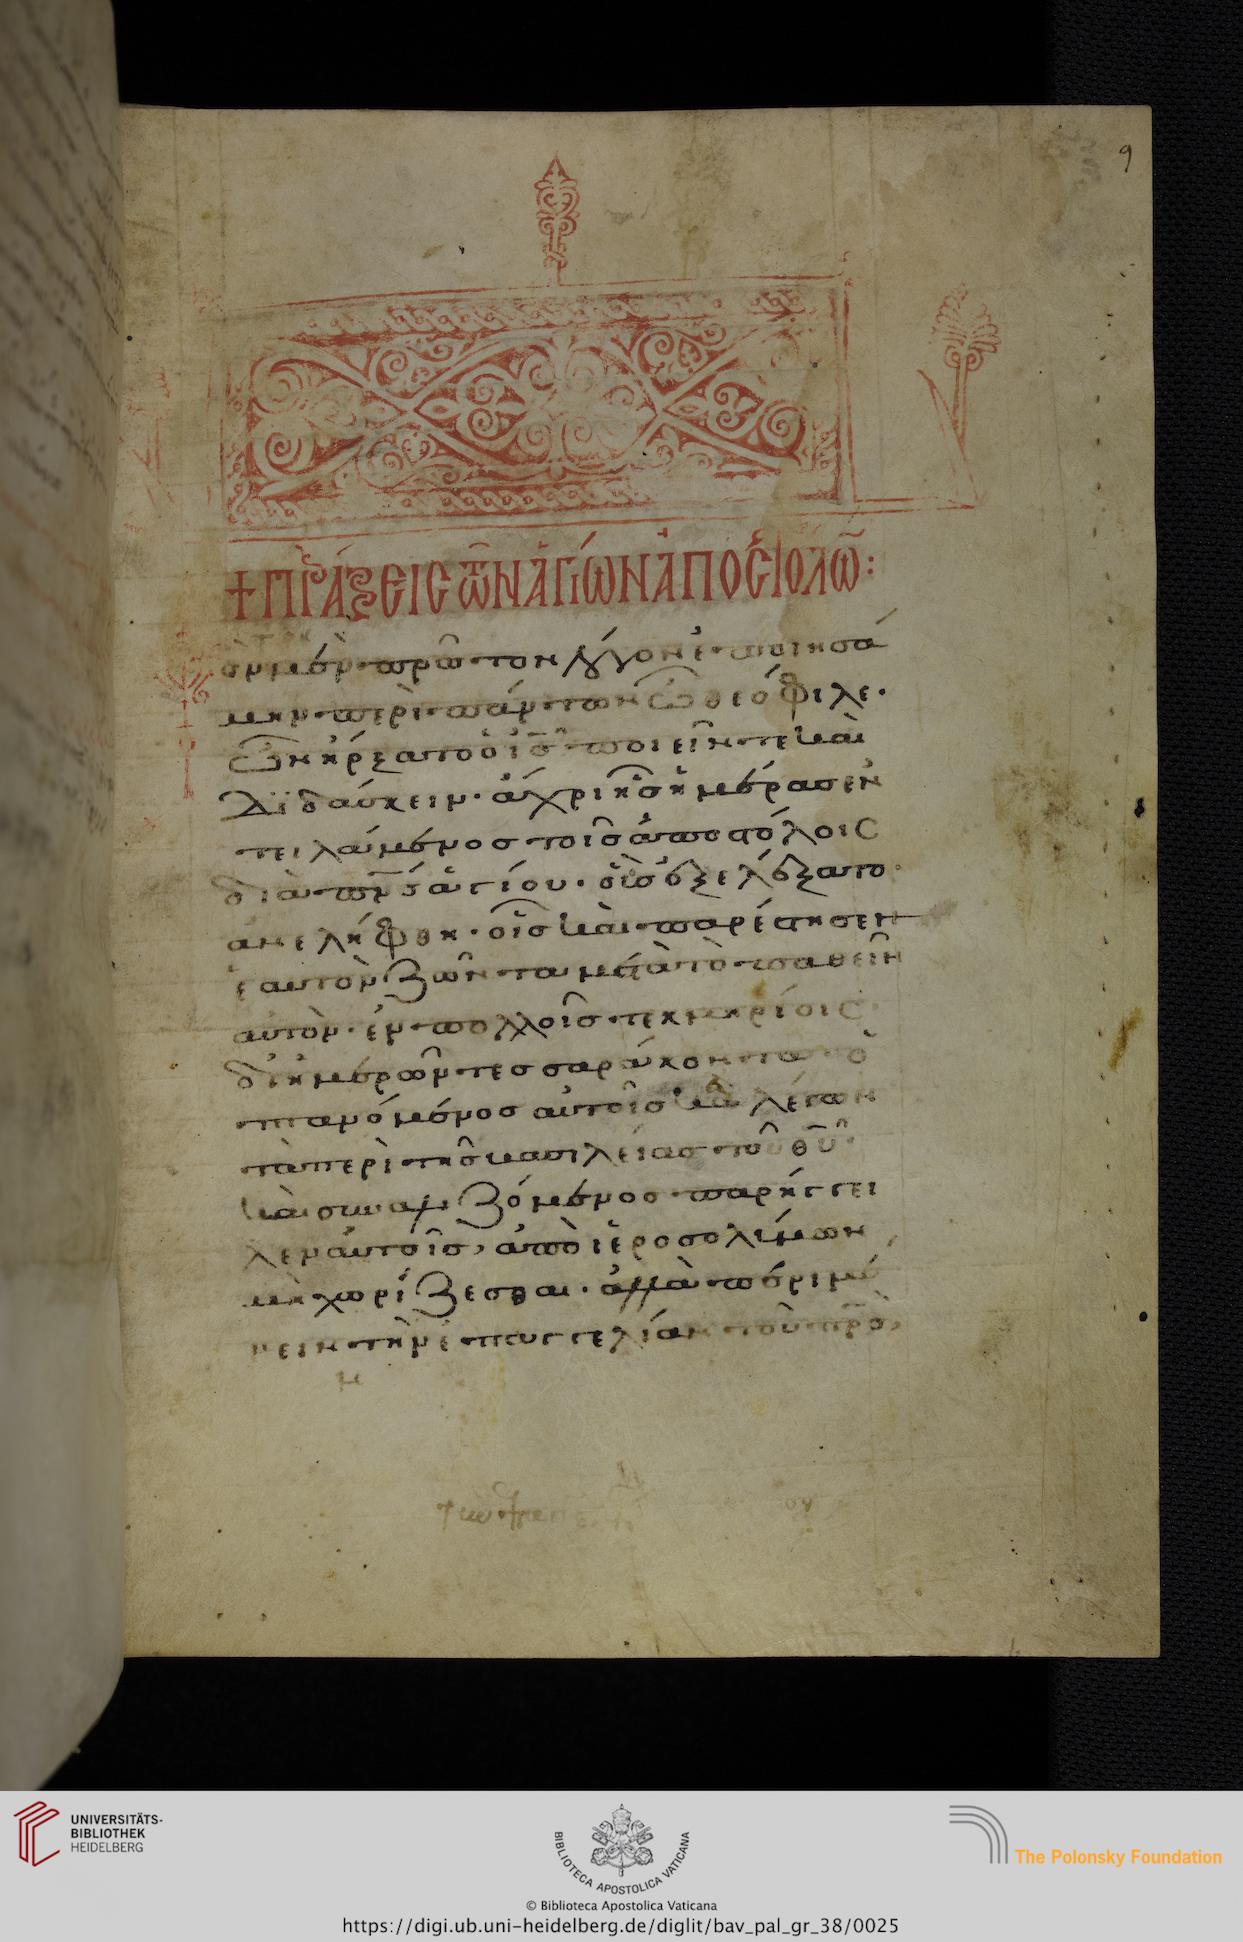 9
+ ΠΡΆΞΕΙς ΤῶΝ ἉΓΊΩΝ ἈΠΟΣΤΌΛΩ̅:
ὸν μὲν πρῶτον λόγον ἐποιησά
μην περὶ πάντων ὦ θεόφιλε·
ὧν ἤρξατο ὁ ι̅ς̅ ποιεῖν τε καὶ
διδάσκειν· ἄχρι ἧς ἡμέρας ἐν
τειλάμενος τοῖς ἀποστόλοις
διὰ π̅ν̅ς ἁγίου· οὓς ἐξελέξατο
ἀνελήφθη· οἷς καὶ παρέστησεν
ἑαυτὸν ζῶντα μετὰ τὸ παθεῖν
αὐτὸν· ἐν πολλοῖς τεκμηρίοις·
δι ἡμερῶν τεσσαράκοντα ὀ
πτανόμενος αὐτοῖς καὶ λέγων
τὰ περὶ τῆς βασιλείας τοῦ θ̅υ̅·
καὶ συναλιζόμενος παρήγγει
λεν αὐτοῖς, ἀπὸ ἱεροσολύμων
μὴ χωρίζεσθαι· ἀλλὰ περιμέ
νειν τὴν ἐπαγγελίαν τοῦ π̅ρ̅ς̅,
UNIVERSITÄTS-
BIBLIOTHEK
HEIDELBERG
BIBLIOTECA APOSTOLICA VATICANA
The Polonsky Foundation
© Biblioteca Apostolica Vaticana
https://digi.ub.uni-heidelberg.de/diglit/bav_pal_gr_38/0025